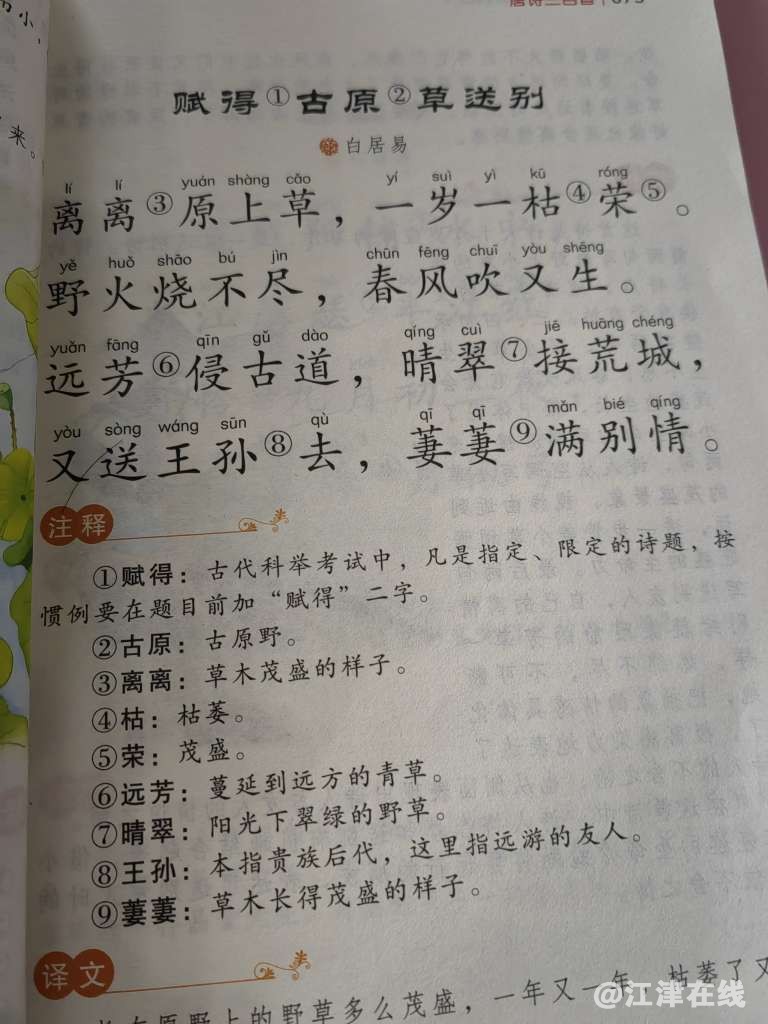 来。
赋得①古原②草送别
白居易
lí lí yuán shàng cǎo yí suì yì kū róng
离离③原上草，一岁一枯④荣⑤。
yě huǒ shāo bú jìn chūn fēng chuī yòu shēng
野火烧不尽，春风吹又生。
yuǎn fāng qīn gǔ dào qíng cuì jiē huāng chéng
远芳⑥侵古道，晴翠⑦接荒城，
yòu sòng wáng sūn qù qī qī mǎn bié qíng
又送王孙⑧去，萋萋⑨满别情。
注释
①赋得：古代科举考试中，凡是指定、限定的诗题，按
惯例要在题目前加“赋得”二字。
②古原：古原野。
③离离：草木茂盛的样子。
④枯：枯萎。
⑤荣：茂盛。
⑥远芳：蔓延到远方的青草。
⑦晴翠：阳光下翠绿的野草。
⑧王孙：本指贵族后代，这里指远游的友人。
⑨萋萋：草木长得茂盛的样子。
译文
原野上的野草多么茂盛，一年又一年，枯萎了又
@江津在线